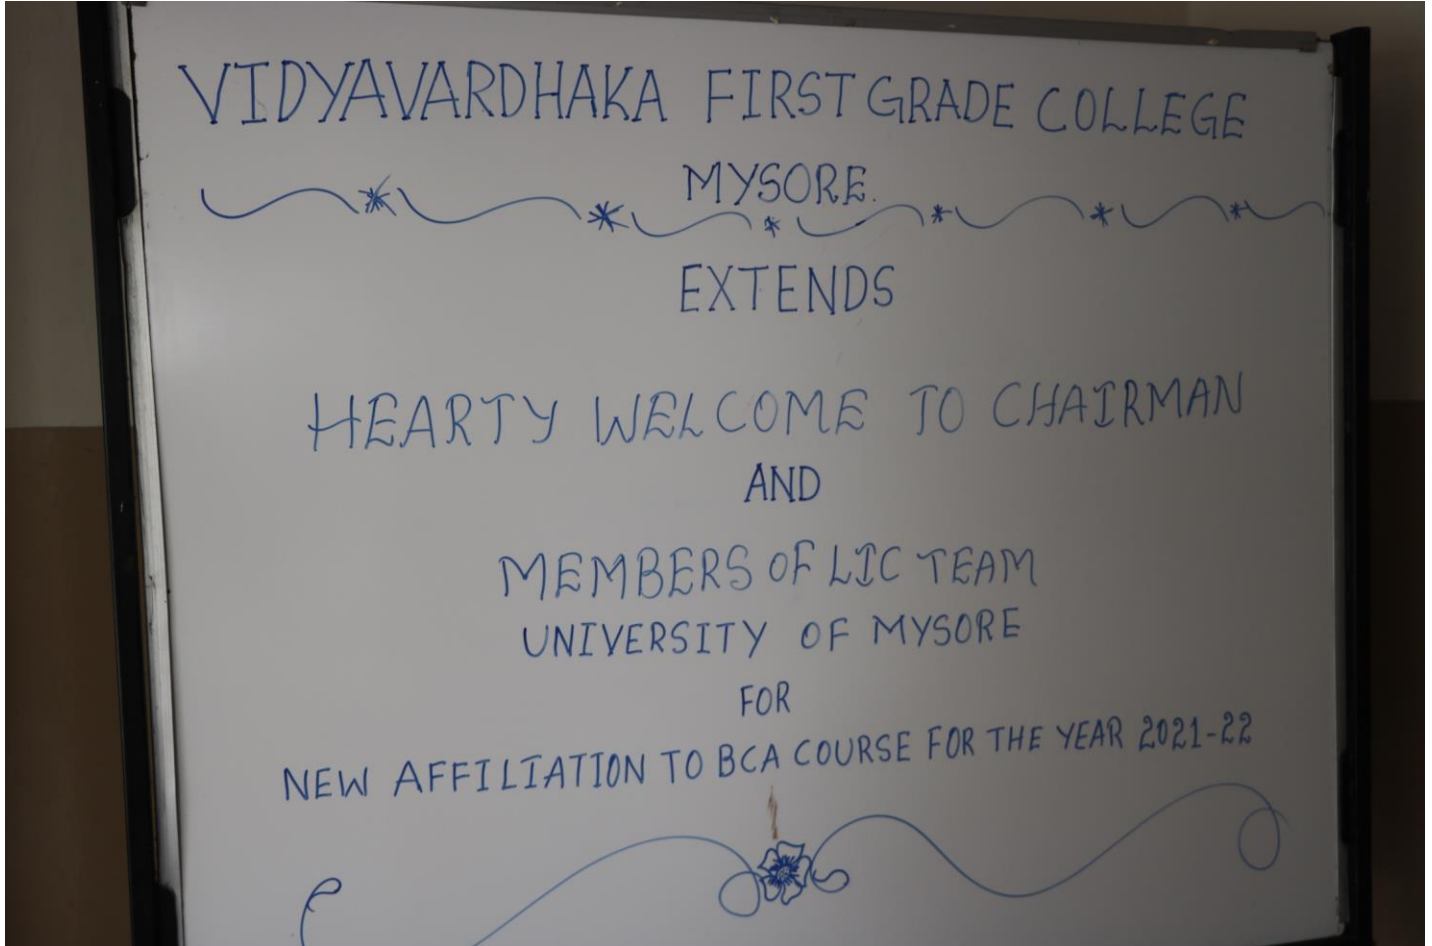 VIDYAVARDHAKA FIRST GRADE COLLEGE
MYSORE.
EXTENDS
HEARTY WELCOME TO CHAIRMAN
AND
MEMBERS OF LIC TEAM
UNIVERSITY OF MYSORE
FOR
NEW AFFILIATION TO BCA COURSE FOR THE YEAR 2021-22